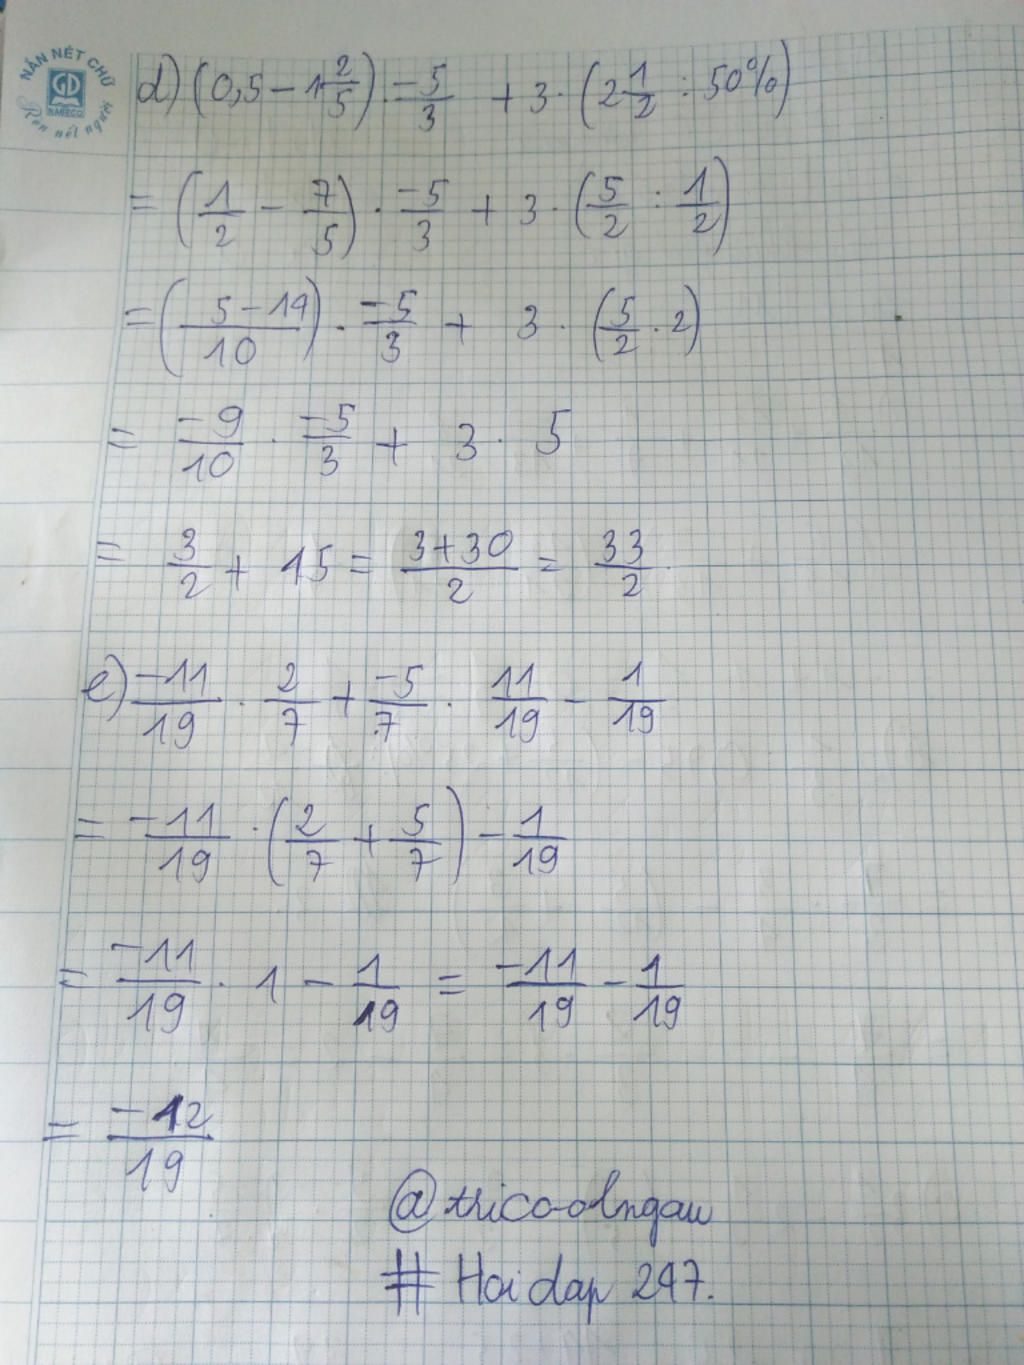 NẮN NÉT CHỮ
GD
NABECO
Rèn nết người
d) (0,5 - 1 2/5) · -5/3 + 3 · (2 1/2 : 50%)
= (1/2 - 7/5) · -5/3 + 3 · (5/2 : 1/2)
= (5-14/10) · -5/3 + 3 · (5/2 · 2)
= -9/10 · -5/3 + 3 · 5
= 3/2 + 15 = 3+30/2 = 33/2
e) -11/19 · 2/7 + -5/7 · 11/19 - 1/19
= -11/19 · (2/7 + 5/7) - 1/19
= -11/19 · 1 - 1/19 = -11/19 - 1/19
= -12/19
# Hoidap 247.